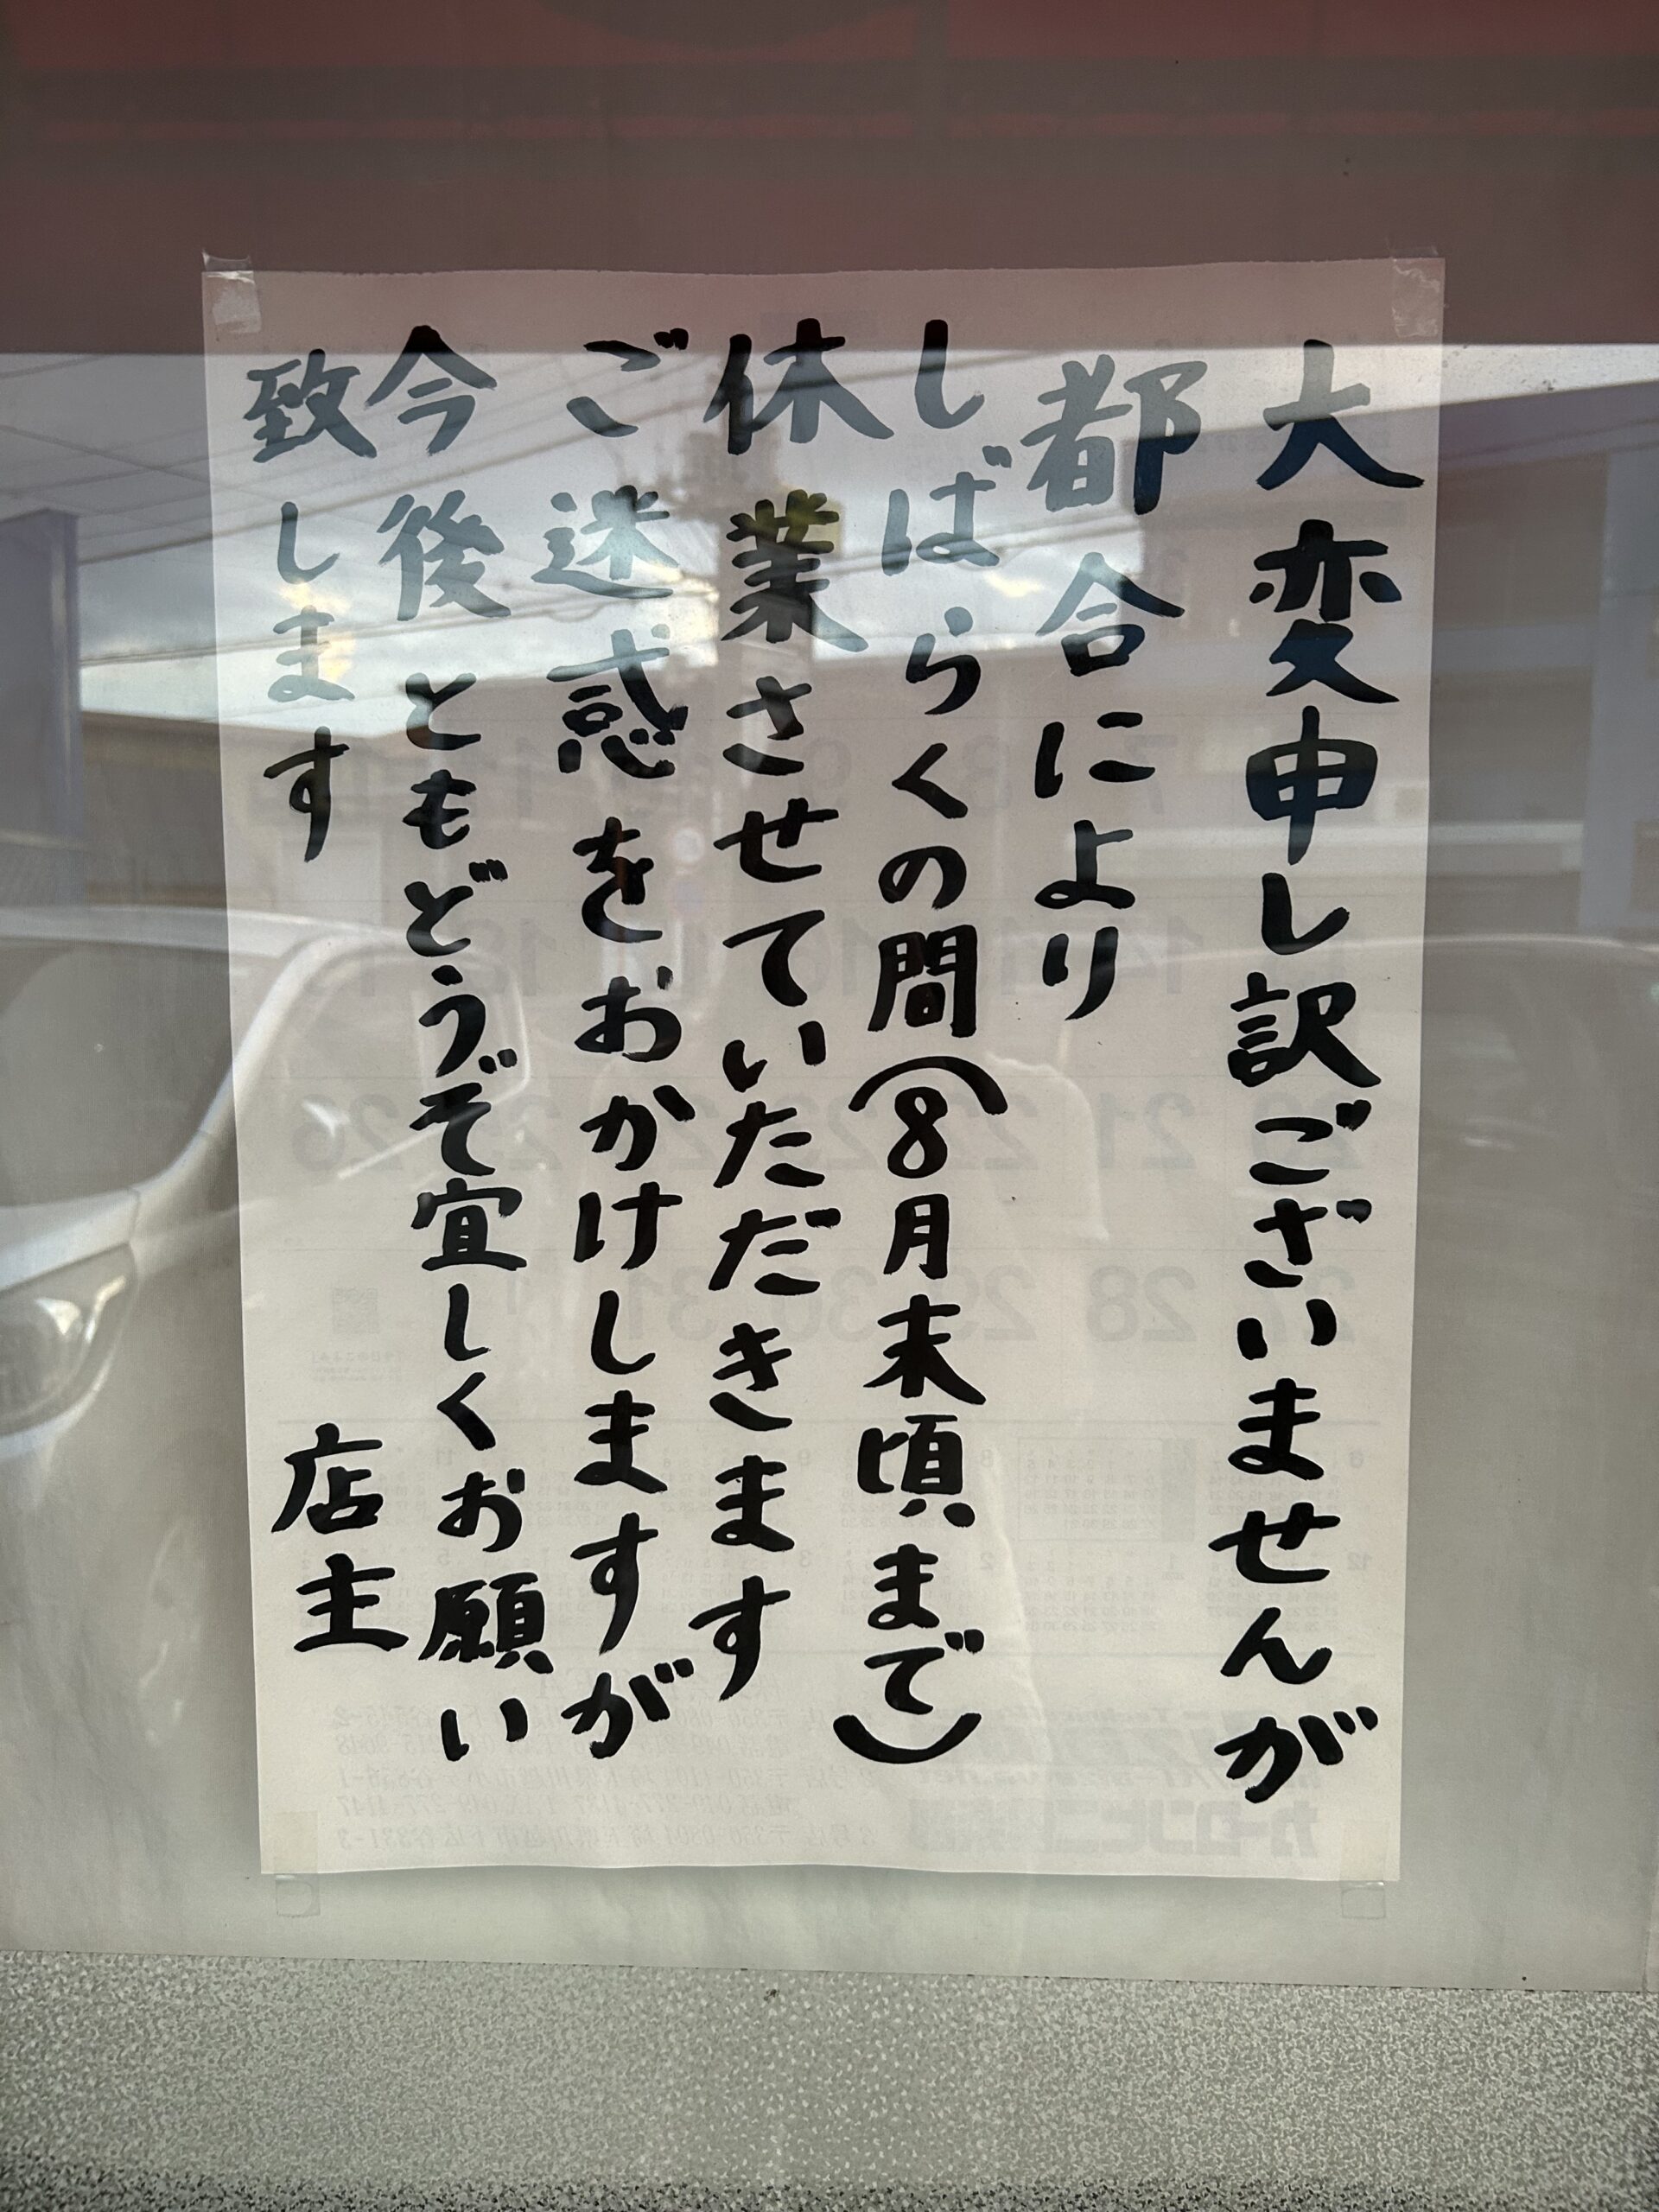 大変申し訳ございませんが
都合により
しばらくの間(8月末頃まで)
休業させていただきます
ご迷惑をおかけしますが
今後ともどうぞ宜しくお願い
致します
店主